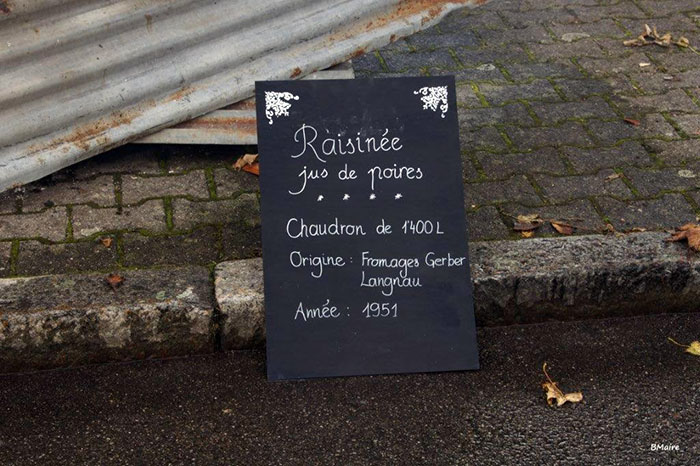 Raisinée
jus de poires
* * * *
Chaudron de 1'400 L
Origine : Fromages Gerber
Langnau
Année : 1951
BMaire